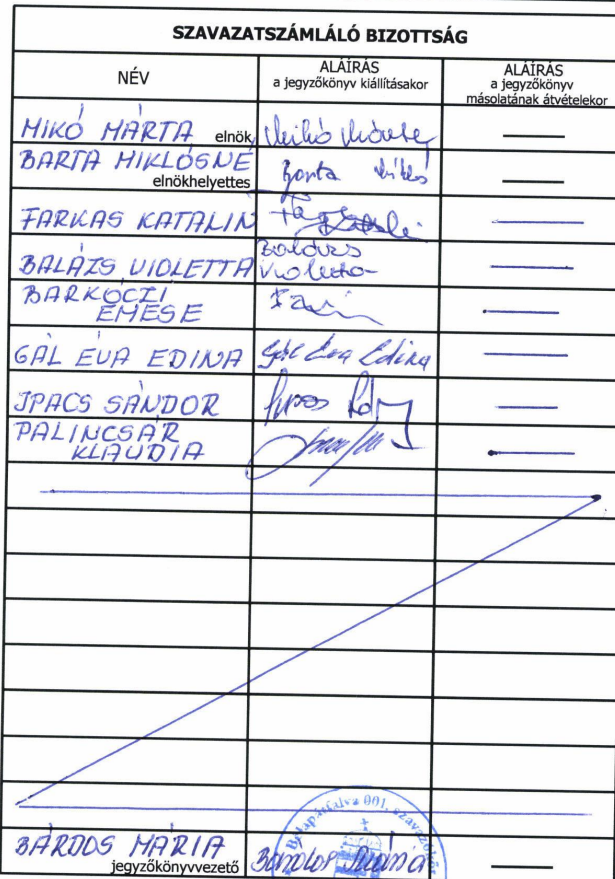 SZAVAZATSZÁMLÁLÓ BIZOTTSÁG
NÉV
ALÁÍRÁS
a jegyzőkönyv kiállításakor
ALÁÍRÁS
a jegyzőkönyv
másolatának átvételekor
MIKÓ MÁRTA elnök Mikó Márta
BARTA MIKLÓSNÉ
elnökhelyettes
Barta Mikló
FARKAS KATALIN
BALÁZS VIOLETTA
Balázs
Violetta
BARKÓCZI
EMESE
GÁL ÉVA EDINA Gál Éva Edina
IPACS SÁNDOR
PALINCSÁR
KLAUDIA
Bélapátfalva 001.
BÁRDOS MÁRIA
jegyzőkönyvvezető
Bárdos Mária